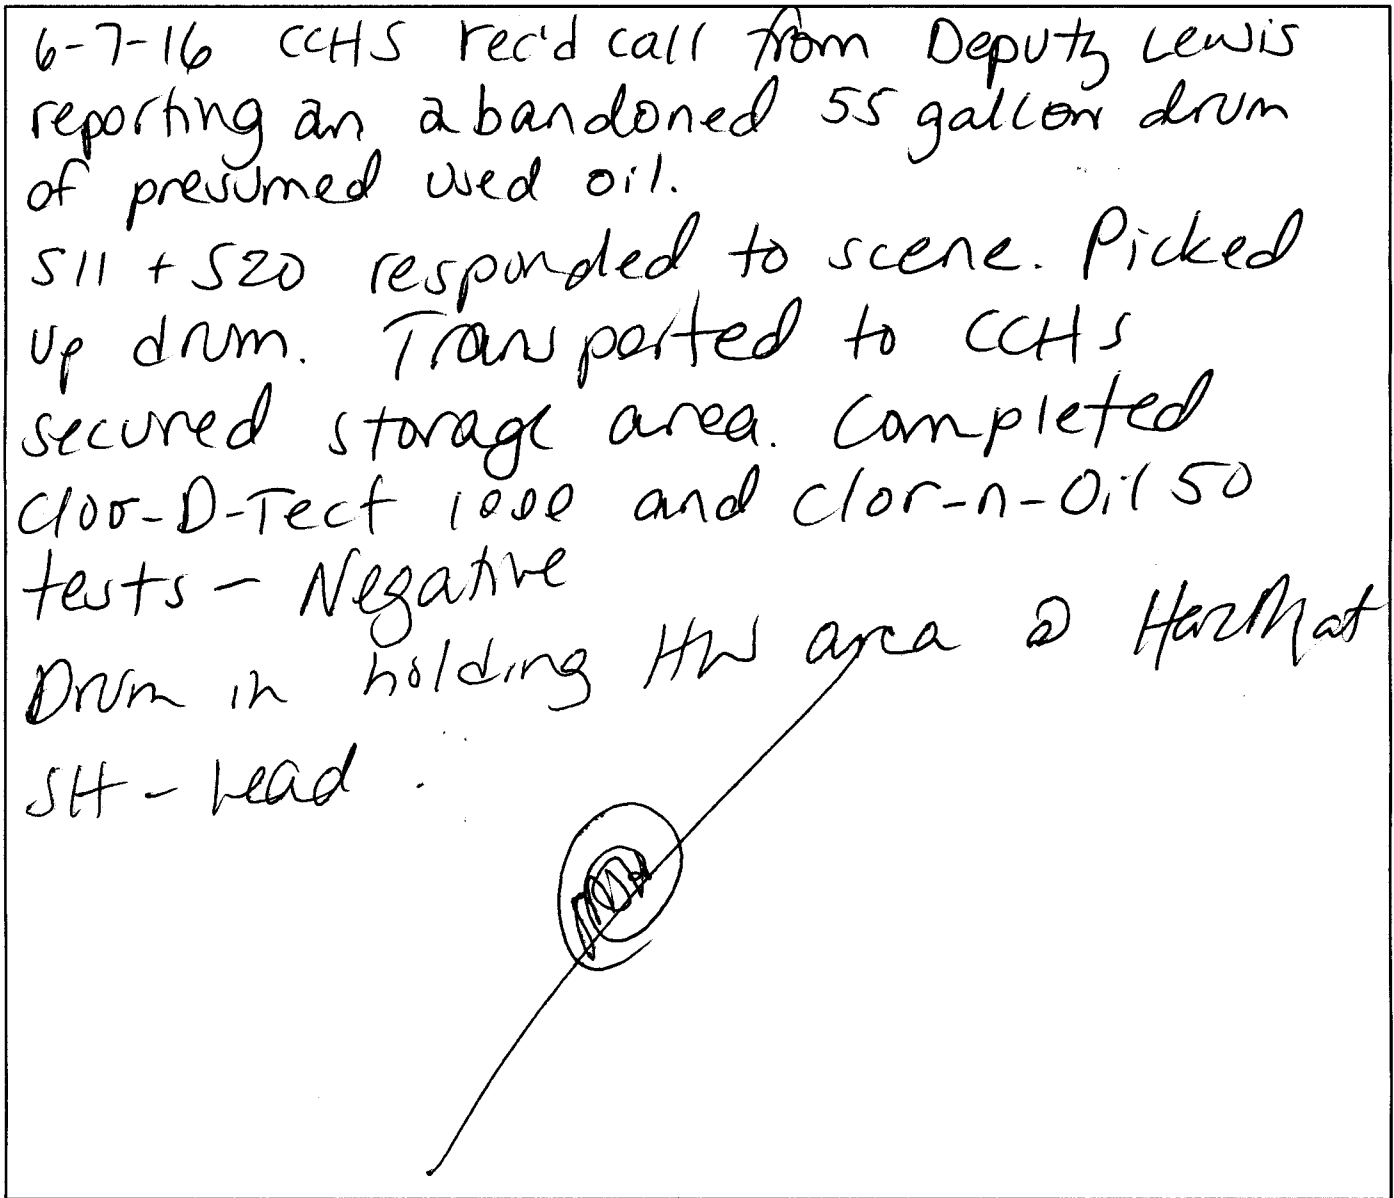 6-7-16 CCHS rec'd call from Deputy Lewis
reporting an abandoned 55 gallon drum
of presumed used oil.
S11 + S20 responded to scene. Picked
up drum. Transported to CCHS
secured storage area. Completed
Clor-D-Tect 1000 and Clor-n-Oil 50
tests - Negative
Drum in holding HW area @ HazMat
SH - Lead